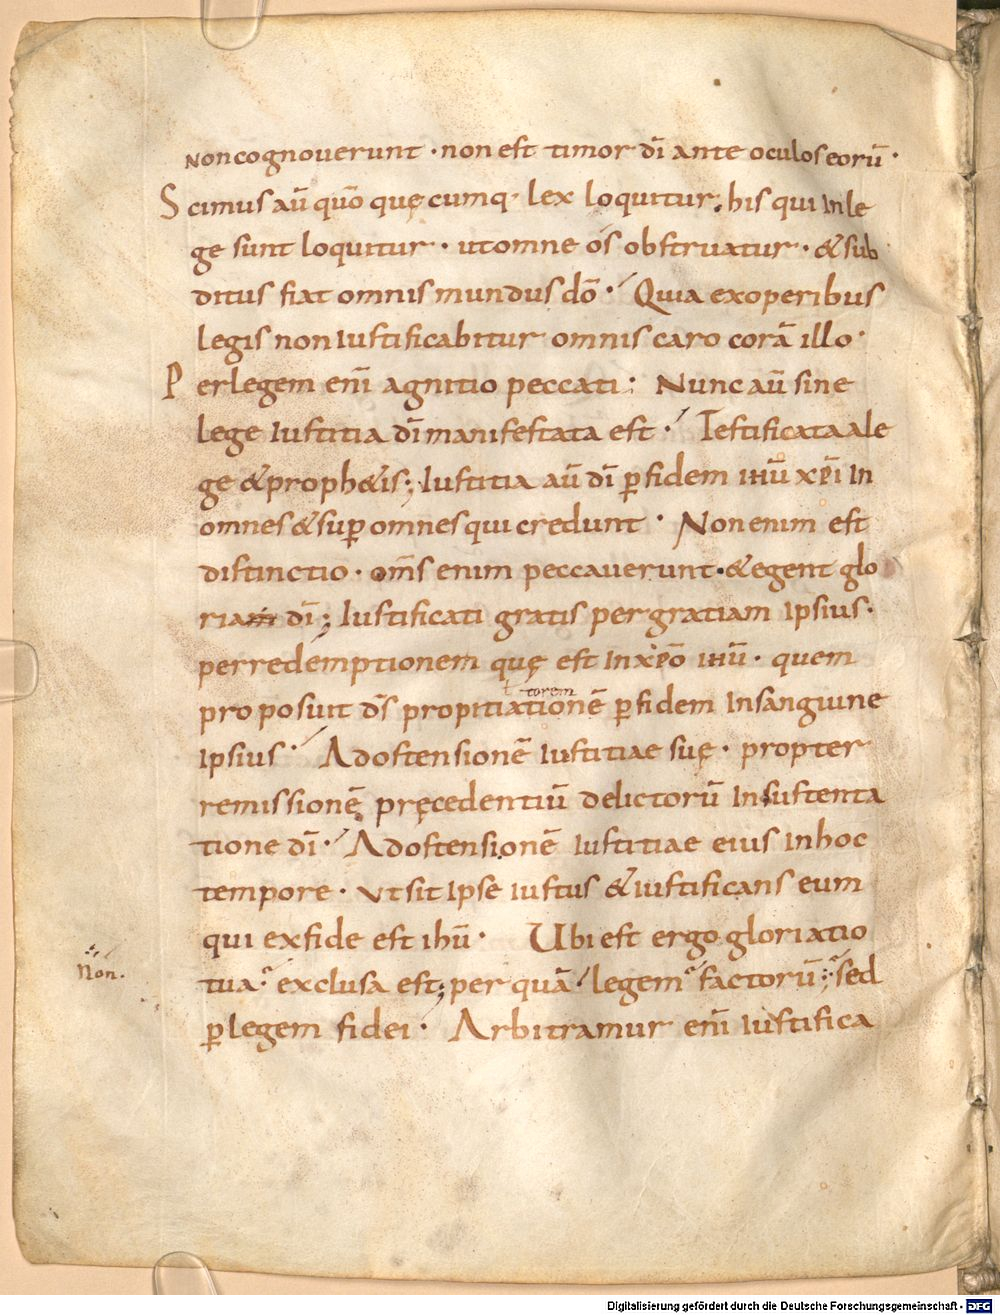 noncognouerunt · non est timor dī ante oculos eorū ·
Scimus aū quō quę cumq· lex loquitur, his qui inle
ge sunt loquitur · ut omne ós obstruatur · & sub
ditus fiat omnis mundus dō · Quia exoperibus
legis non iustificabitur omnis caro corā illo ·
Per legem enī agnitio peccati : Nunc aū sine
lege iustitia dī manifestata est · Testificata ale
ge & proph&is ; Iustitia aū dī ꝑ fidem ihū xp̄i in
omnes & suꝑ omnes qui credunt · Non enim est
distinctio · om̄s enim peccauerunt · & egent glo
riam dī ; Iustificati gratis per gratiam ipsius ·
per redemptionem quę est in xp̄o ihū · quem
ł torem
proposuit d̄s propitiationē ꝑ fidem in sanguine
ipsius · Ad ostensionē iustitiae suę · propter
remissionē pręcedentiū delictorū in sustenta
tione dī · Ad ostensionē iustitiae eius in hoc
tempore · ut sit ipse iustus & iustificans eum
qui ex fide est ihū · Ubi est ergo gloriatio
Non.
tua · exclusa est ; per quā legem factorū ; sed
ꝑ legem fidei · Arbitramur enī iustifica
Digitalisierung gefördert durch die Deutsche Forschungsgemeinschaft - DFG